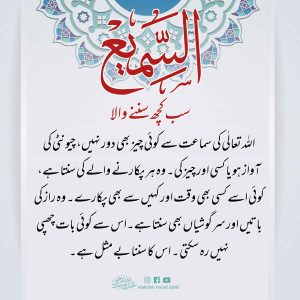 السَّمِيعُ
سب کچھ سننے والا
اللہ تعالیٰ کی سماعت سے کوئی چیز بھی دور نہیں، چیونٹی کی
آواز ہو یا کسی اور چیز کی۔ وہ ہر پکارنے والے کی سنتا ہے،
کوئی اسے کسی بھی وقت اور کہیں سے بھی پکارے۔ وہ راز کی
باتیں اور سرگوشیاں بھی سنتا ہے۔ اس سے کوئی بات چھپی
نہیں رہ سکتی۔ اس کا سننا بے مثل ہے۔
Abdullah Yousuf Zehbi